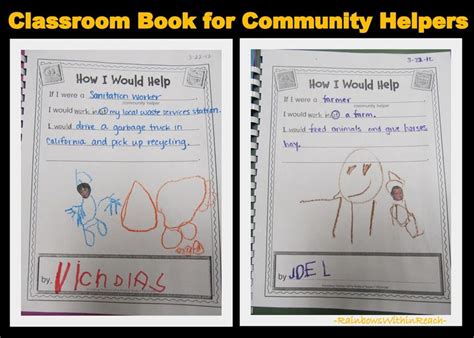 Classroom Book for Community Helpers
3-22-12
How I Would Help
If I were a Sanitation Worker
community helper
I would work in/at my local waste services station.
I would drive a garbage truck in
California and pick up recycling.
by, NichOlAS
3-22-12
How I Would Help
If I were a farmer
community helper
I would work in/at a farm.
I would feed animals and give horses
hay.
by, JOEL
-RainbowsWithinReach-